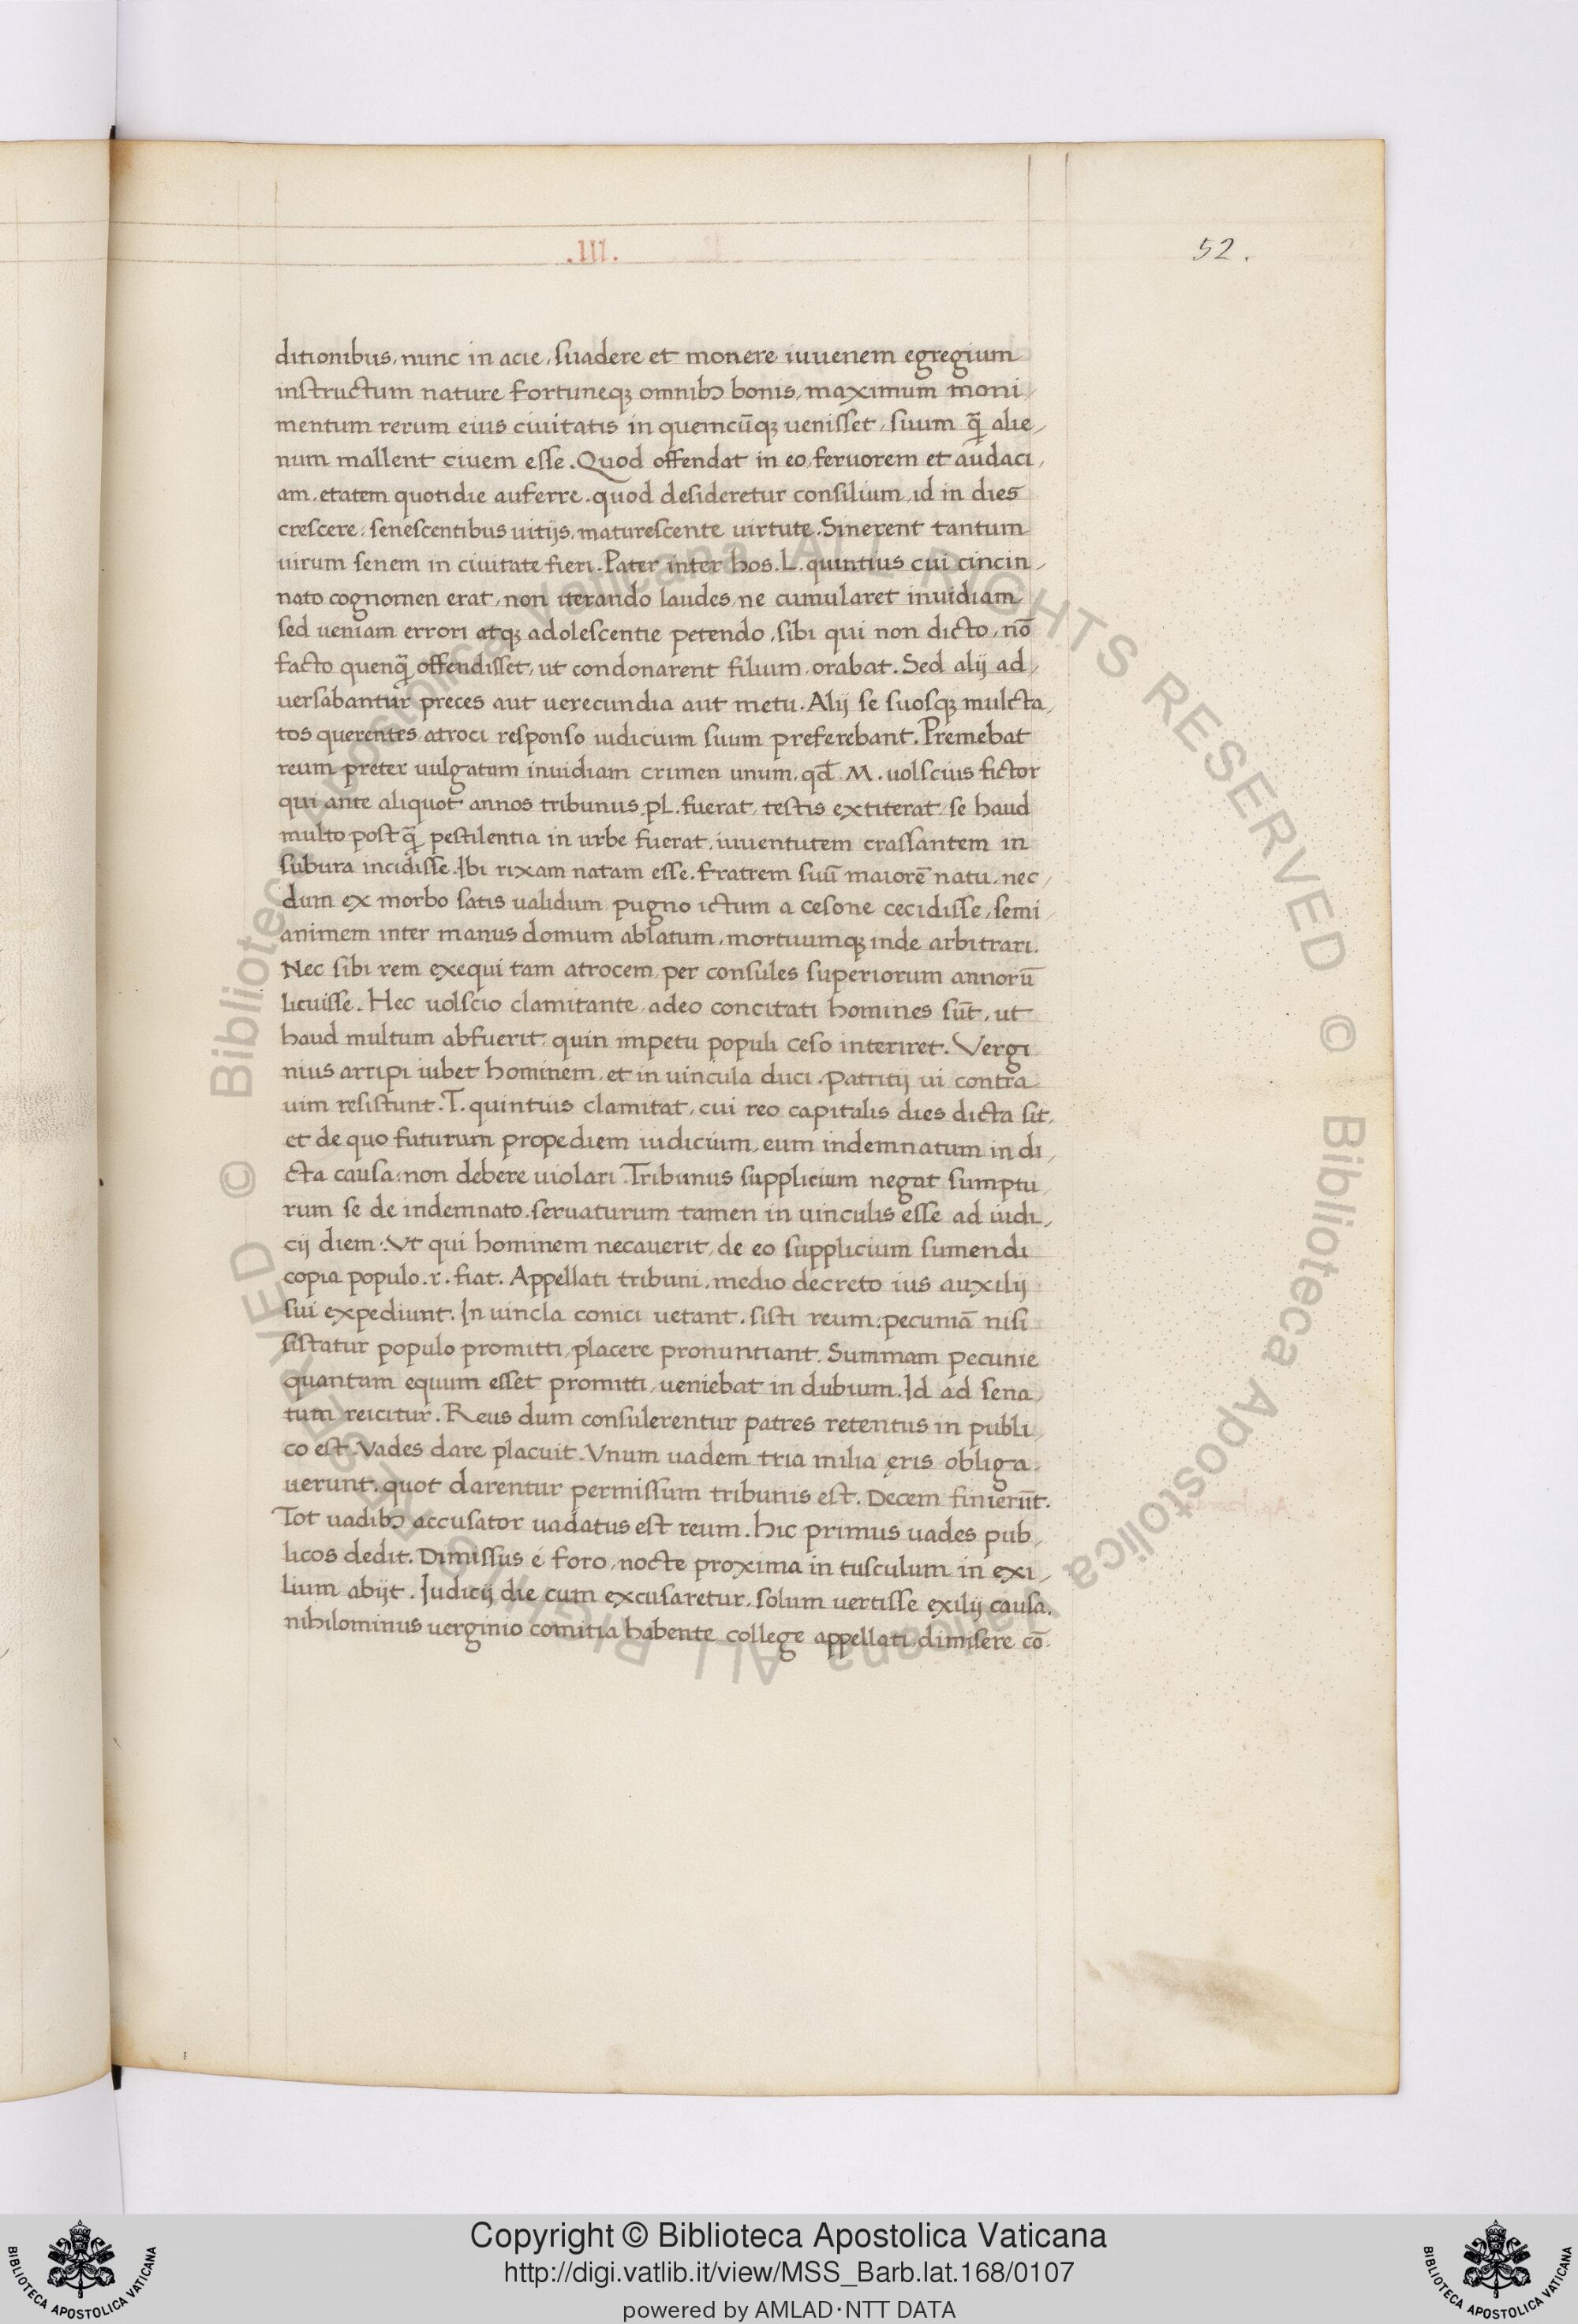 .III.
52.
ditionibus, nunc in acie, suadere et monere iuuenem egregium
instructum nature fortuneqꝫ omnibꝫ bonis, maximum moni,
mentum rerum eius ciuitatis in quemcūqꝫ uenisset, suum q̃ alie,
num mallent ciuem esse. Quod offendat in eo, feruorem et audaci,
am, etatem quotidie auferre. quod desideretur consilium, id in dies
crescere, senescentibus uitijs, maturescente uirtute. Sinerent tantum
uirum senem in ciuitate fieri. Pater inter hos. L. quintius cui cincin,
nato cognomen erat, non iterando laudes, ne cumularet inuidiam
sed ueniam errori atqꝫ adolescentie petendo, sibi qui non dicto, nō
facto quenq̃ offendisset, ut condonarent filium, orabat. Sed alij ad,
uersabantur preces aut uerecundia aut metu. Alij se suosqꝫ mulcta,
tos querentes, atroci responso iudicium suum preferebant. Premebat
reum preter uulgatam inuidiam crimen unum, qđ. M. uolscius fictor
qui ante aliquot annos tribunus pL. fuerat, testis extiterat, se haud
multo post q̃ pestilentia in urbe fuerat, iuuentutem crassantem in
subura incidisse. Ibi rixam natam esse, fratrem suū maiorē natu, nec,
dum ex morbo satis ualidum pugno ictum a cesone cecidisse, semi,
animem inter manus domum ablatum, mortuumqꝫ inde arbitrari.
Nec sibi rem exequi tam atrocem, per consules superiorum annorū
licuisse. Hec uolscio clamitante, adeo concitati homines sūt, ut
haud multum abfuerit, quin impetu populi ceso interiret. Vergi
nius arripi iubet hominem, et in uincula duci. Patritij ui contra
uim resistunt. T. quintius clamitat, cui reo capitalis dies dicta sit,
et de quo futurum propediem iudicium, eum indemnatum in di,
cta causa, non debere uiolari. Tribunus supplicium negat sumptu,
rum se de indemnato. seruaturum tamen in uinculis esse ad iudi,
cij diem. Vt qui hominem necauerit, de eo supplicium sumendi
copia populo. r. fiat. Appellati tribuni, medio decreto ius auxilij
sui expediunt. In uincla conici uetant. sisti reum, pecuniā nisi
sistatur populo promitti, placere pronuntiant. Summam pecunie
quantam equum esset promitti, ueniebat in dubium. Id ad sena,
tum reicitur. Reus dum consulerentur patres retentus in publi,
co est. Vades dare placuit. Vnum uadem tria milia ęris obliga,
uerunt. quot darentur permissum tribunis est. Decem finierūt.
Tot uadibꝫ accusator uadatus est reum. hic primus uades pub,
licos dedit. Dimissus e foro, nocte proxima in tusculum in exi,
lium abijt. Iudicij die cum excusaretur, solum uertisse exilij causa.
nihilominus uerginio comitia habente college appellati, dimisere cō
© Biblioteca Apostolica Vaticana ALL RIGHTS RESERVED © Biblioteca Apostolica Vaticana ALL RIGHTS RESERVED
Copyright © Biblioteca Apostolica Vaticana
http://digi.vatlib.it/view/MSS_Barb.lat.168/0107
powered by AMLAD·NTT DATA
BIBLIOTECA APOSTOLICA VATICANA
BIBLIOTECA APOSTOLICA VATICANA